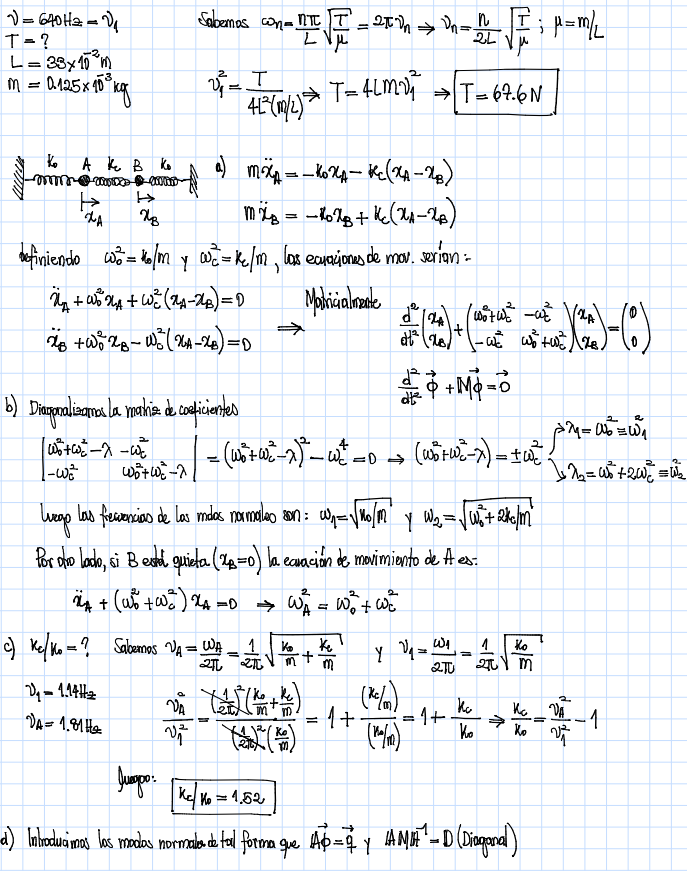 ν = 640 Hz = ν₁
T = ?
L = 33×10⁻² m
m = 0.125×10⁻³ kg
Sabemos ωₙ = nπ/L √(T/μ) = 2πνₙ → νₙ = n/2L √(T/μ) ; μ = m/L
ν₁² = T/(4L²(m/L)) → T = 4Lmν₁² ⇒ T = 67.6 N
k₀ A k_c B k₀
x_A x_B
a) mẍ_A = -k₀x_A - k_c(x_A - x_B)
mẍ_B = -k₀x_B + k_c(x_A - x_B)
definiendo ω₀² = k₀/m y ω_c² = k_c/m, las ecuaciones de mov. serían:
ẍ_A + ω₀²x_A + ω_c²(x_A - x_B) = 0
ẍ_B + ω₀²x_B - ω_c²(x_A - x_B) = 0
⇒ Matricialmente
d²/dt² (x_A x_B) + (ω₀²+ω_c² -ω_c² -ω_c² ω₀²+ω_c²)(x_A x_B) = (0 0)
d²/dt² ϕ⃗ + Mϕ⃗ = 0⃗
b) Diagonalizamos la matriz de coeficientes
|ω₀²+ω_c²-λ -ω_c² -ω_c² ω₀²+ω_c²-λ| = (ω₀²+ω_c²-λ)² - ω_c⁴ = 0 ⇒ (ω₀²+ω_c²-λ) = ±ω_c² → λ₁ = ω₀² ≡ ω₁²
→ λ₂ = ω₀²+2ω_c² ≡ ω₂²
Luego las frecuencias de los modos normales son: ω₁ = √(k₀/m) y ω₂ = √(ω₀²+2k_c/m)
Por otro lado, si B está quieta (x_B=0) la ecuación de movimiento de A es:
ẍ_A + (ω₀²+ω_c²)x_A = 0 ⇒ ω_A² = ω₀²+ω_c²
c) k_c/k₀ = ? Sabemos ν_A = ω_A/2π = 1/2π √(k₀/m + k_c/m) y ν₁ = ω₁/2π = 1/2π √(k₀/m)
ν₁ = 1.14 Hz
ν_A = 1.81 Hz
ν_A²/ν₁² = (1/2π)²(k₀/m + k_c/m)/(1/2π)²(k₀/m) = 1 + (k_c/m)/(k₀/m) = 1 + k_c/k₀ ⇒ k_c/k₀ = ν_A²/ν₁² - 1
luego: k_c/k₀ = 1.52
d) Introducimos los modos normales de tal forma que Aϕ⃗ = q⃗ y AMA⁻¹ = D (Diagonal)